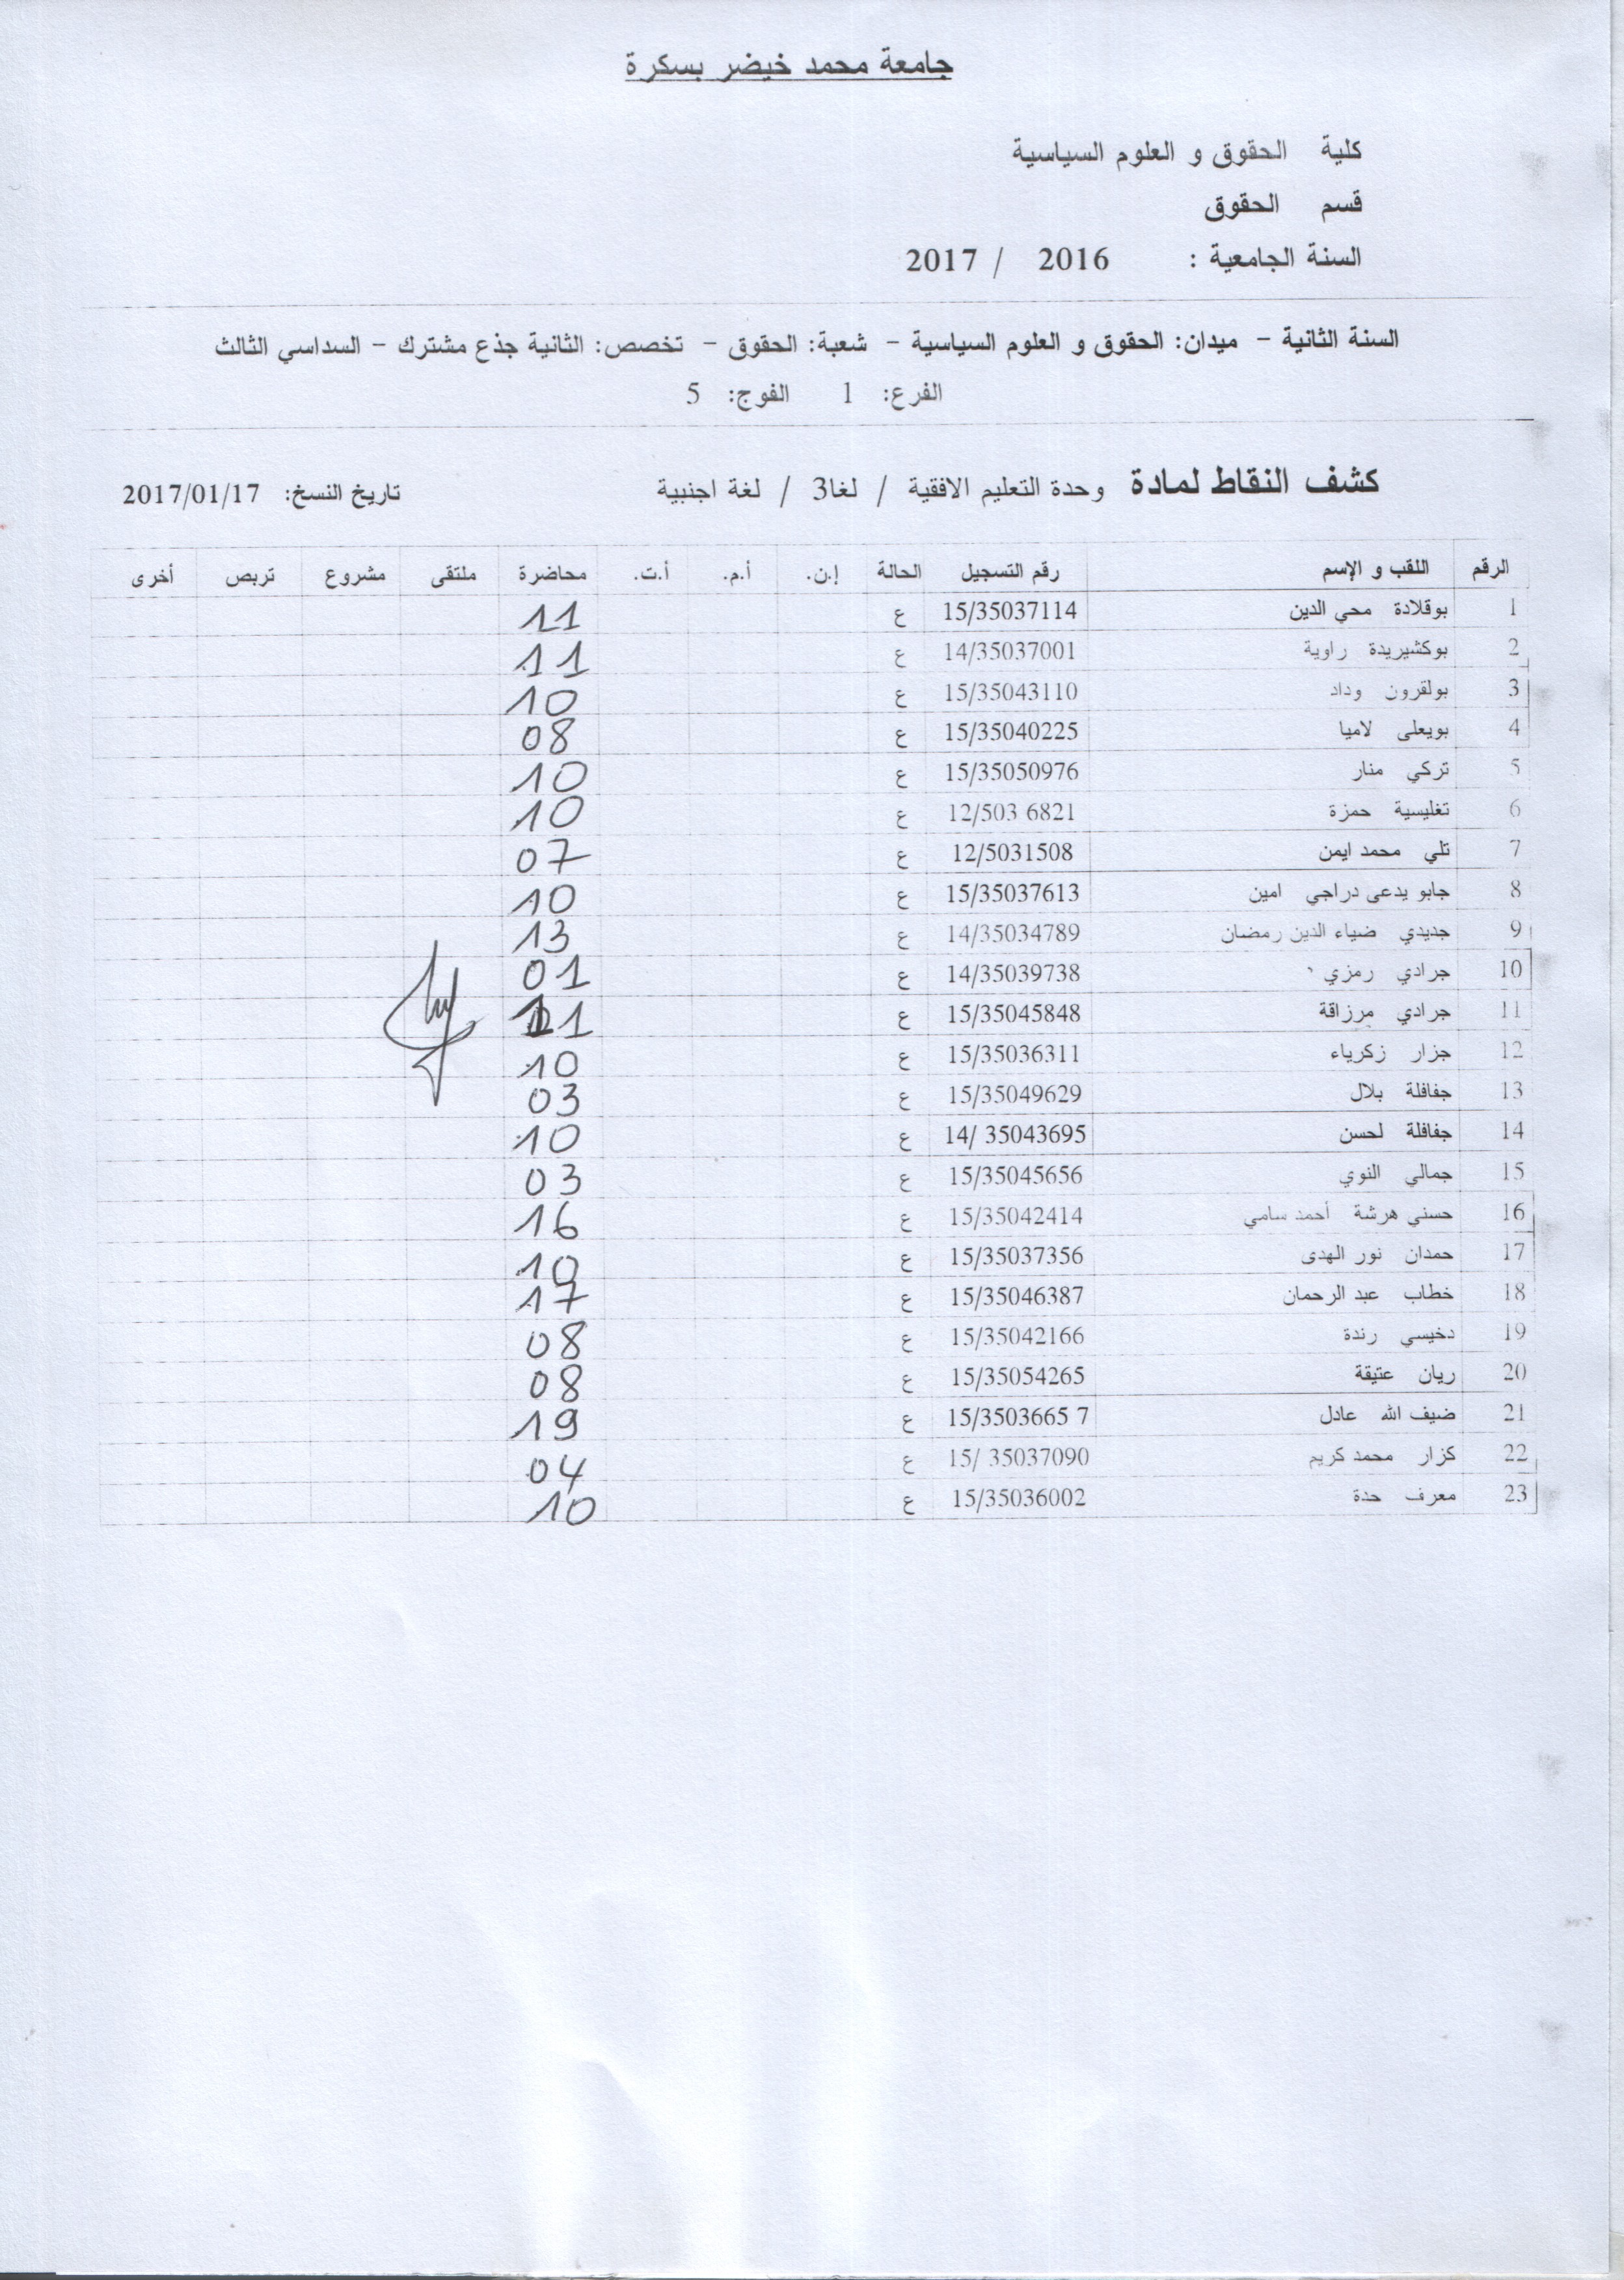 جامعة محمد خيضر بسكرة
كلية الحقوق و العلوم السياسية
قسم الحقوق
السنة الجامعية : 2016 / 2017
السنة الثانية - ميدان: الحقوق و العلوم السياسية - شعبة: الحقوق - تخصص: الثانية جذع مشترك - السداسي الثالث
الفرع: 1 الفوج: 5
كشف النقاط لمادة وحدة التعليم الافقية / لغا3 / لغة اجنبية تاريخ النسخ: 2017/01/17
الرقم اللقب و الإسم رقم التسجيل الحالة إ.ن. أ.م. أ.ت. محاضرة ملتقى مشروع تربص أخرى
1 بوقلادة محي الدين 15/35037114 ع 11
2 بوكشيريدة راوية 14/35037001 ع 11
3 بولقرون وداد 15/35043110 ع 10
4 بويعلى لاميا 15/35040225 ع 08
5 تركي منار 15/35050976 ع 10
6 تغليسية حمزة 12/503 6821 ع 10
7 تلي محمد ايمن 12/5031508 ع 07
8 جابو يدعى دراجي امين 15/35037613 ع 10
9 جديدي ضياء الدين رمضان 14/35034789 ع 13
10 جرادي رمزي 14/35039738 ع 01
11 جرادي مرزاقة 15/35045848 ع 11
12 جزار زكرياء 15/35036311 ع 10
13 جفافلة بلال 15/35049629 ع 03
14 جفافلة لحسن 14/ 35043695 ع 10
15 جمالي النوي 15/35045656 ع 03
16 حسني هرشة أحمد سامي 15/35042414 ع 16
17 حمدان نور الهدى 15/35037356 ع 10
18 خطاب عبد الرحمان 15/35046387 ع 17
19 دخيسي رندة 15/35042166 ع 08
20 ريان عتيقة 15/35054265 ع 08
21 ضيف الله عادل 15/3503665 7 ع 19
22 كزار محمد كريم 15/ 35037090 ع 04
23 معرف حدة 15/35036002 ع 10